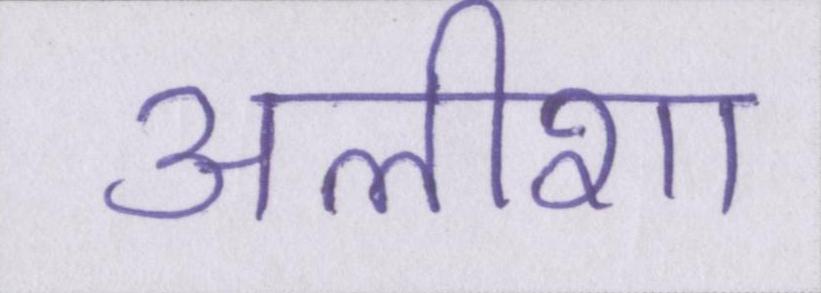 अलीशा